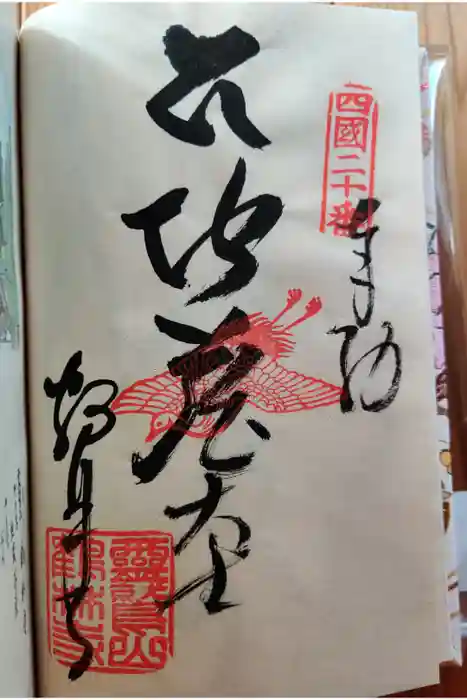 四國二十番
奉納
地蔵大
鶴林寺
靈鷲山
鶴林寺